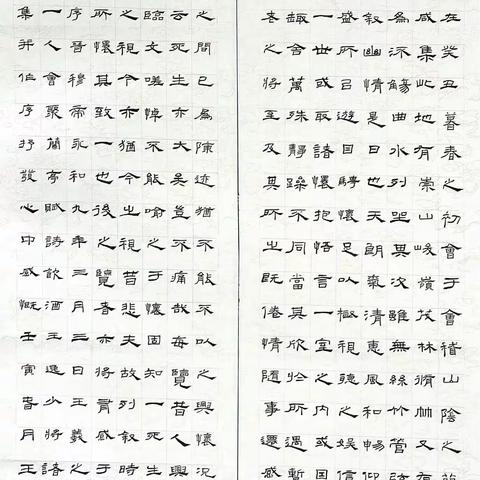 在癸丑暮春之初會于會稽山陰之
咸集此地有崇山峻嶺茂林脩竹又有
為流觴曲水列坐其次雖無絲竹管弦
敘幽情是日也天朗氣清惠風和暢仰
盛所召遊目騁懷足以極視聽之娛信
一世或取諸懷抱悟言一室之內或因
趣舍萬殊靜躁不同當其欣於所遇暫
喜之將至及其所之既倦情隨事遷感
之間已為陳迹猶不能不以之興懷況
云死生亦大矣豈不痛哉每覽昔人興
臨文嗟悼不能喻之于懷固知一死生
之視今亦猶今之視昔悲夫故列敘時
所懷其致一也後之覽者亦將有感于
序晉穆帝永和九年三月三日王羲之
一人會聚蘭亭賦詩飲酒王逸少將諸
集并作序抒發心中感慨壬寅春月王